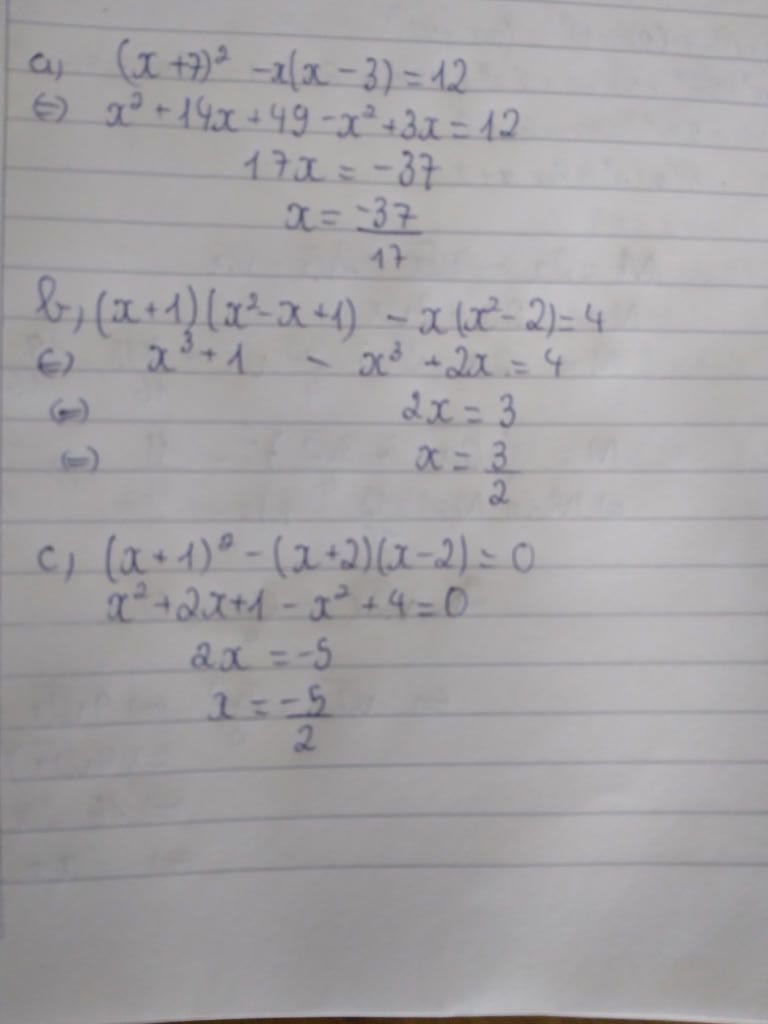 a, (x+7)² -x(x-3)=12
⇔ x²+14x+49-x²+3x=12
17x = -37
x = -37/17
b, (x+1)(x²-x+1) - x(x²-2)=4
⇔ x³+1 - x³ +2x = 4
⇔ 2x = 3
⇔ x = 3/2
c, (x+1)² - (x+2)(x-2) = 0
x²+2x+1 - x² +4=0
2x = -5
x = -5/2